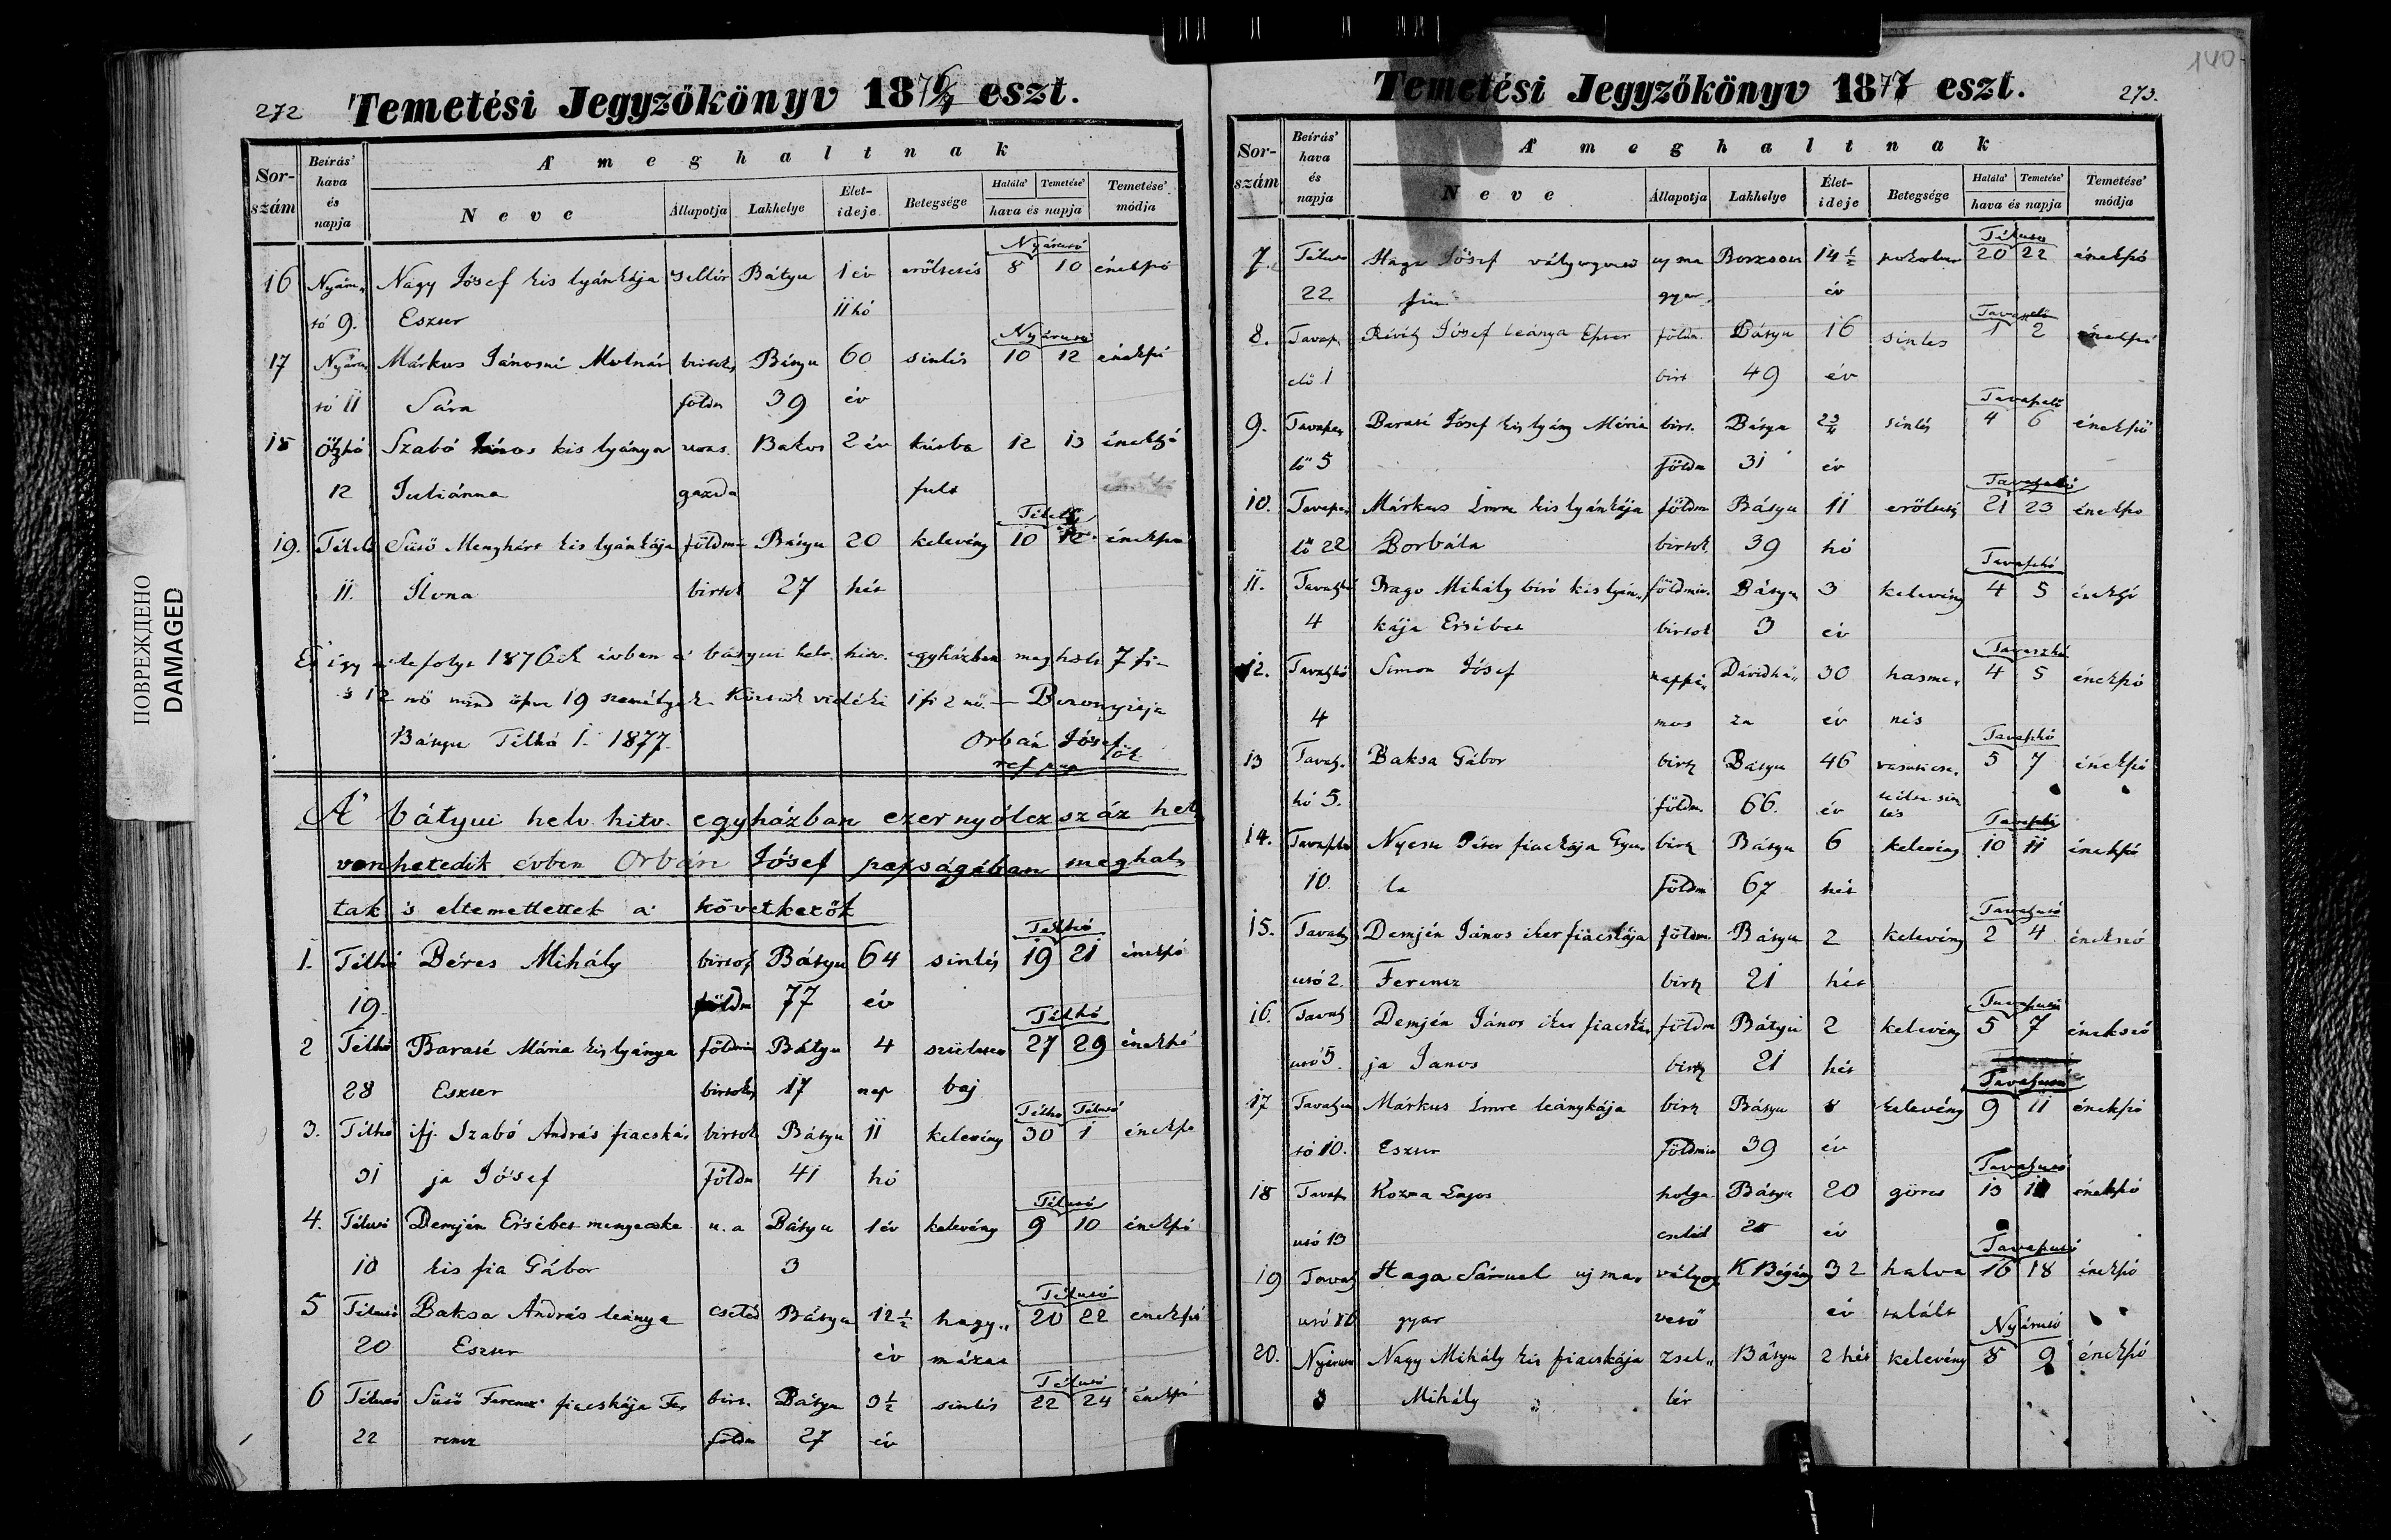 272 Temetési Jegyzőkönyv 1876/7 eszt.
Sor-szám Beírás' hava és napja A' meghaltnak
Neve Állapotja Lakhelye Élet-ideje Betegsége Halála' Temetése' hava és napja Temetése' módja
Nyárutó
16 Nyáru„ Nagy Jósef kis lyánkája sellér Bátyu 1 év erőltetés 8 10 énekszó
tó 9. Eszter 11 hó
Nyárutó
17 Nyáru Márkus Jánosné Molnár birtok Bátyu 60 sinlés 10 12 énekszó
tó 11 Sára földm 39 év
18 Őszhó Szabó János kis lyánya uras. Bakos 2 év kútba 12 13 énekszó
12 Juliánna gazda fult
Télelő
19. Télelő Sütő Menyhárt kis lyánkája földm Bátyu 20 kelevény 10 12 énekszó
11. Ilona birtok 27 hét
És így a' lefolyt 1876ik évben a' bátyui helv. hitv. egyházban meghalt 7 fi-
s 12 nő mind össze 19 személyek. Köztük vidéki 1 fi 2 nő. — Bizonyítja
Bátyu Télhó 1. 1877. Orbán Jósef
ref pap
A' bátyui helv. hitv. egyházban ezernyólczszáz het
venhetedik évben Orbán Jósef papságában meghal„
tak 's eltemettettek a' következők
Télhó
1. Télhó Béres Mihály birtok Bátyu 64 sinlés 19 21 énekszó
19. földm 77 év
Télhó
2 Télhó Barasé Mária kis lyánya földmiv Bátyu 4 születési 27 29 énekszó
28 Eszter birtok 17 nap baj
Télhó Télutó
3. Télhó ifj. Szabó András fiacská„ birtok Bátyu 11 kelevény 30 1 énekszó
31 ja Jósef földm 41 hó
Télutó
4. Télutó Demjén Ersébet menyecske u. a Bátyu 1 év kelevény 9 10 énekszó
10 kis fia Gábor 3
Télutó
5 Télutó Baksa András leánya cseléd Bátyu 12 1/2 hagy„ 20 22 énekszó
20 Eszter év mázas
Télutó
6 Télutó Sütő Ferencz fiacskája Fe„ birt. Bátyu 3 1/2 sinlés 22 24 énekszó
22 rencz földm 27 év
140
Temetési Jegyzőkönyv 1877 eszt. 273.
Sor-szám Beírás' hava és napja A' meghaltnak
Neve Állapotja Lakhelye Élet-ideje Betegsége Halála' Temetése' hava és napja Temetése' módja
Télutó
7. Télutó Haga Jósef vályogvető uj ma Borzsova 14 1/2 20 22 énekszó
22 fia gyar év
Tavaszelő
8. Tavasz Jósef leánya Eszter földm. Bátyu 16 sinles 1 2 énekszó
elő 1 birt 49 év
Tavaszelő
9. Tavasze„ Barasé Jósef kis lyány Mária birt. Bátyu 2 3/4 sinlés 4 6 énekszó
lő 5 földm 31 év
Tavaszelő
10. Tavasze„ Márkus Imre kis lyánkája földm Bátyu 11 erőltetés 21 23 énekszó
lő 22 Borbála birtok 39 hó
Tavaszhó
11. Tavaszhó Bago Mihály biró kis lyán„ földmiv. Bátyu 3 kelevény 4 5 énekszó
4 kája Ersébet birtok 3 év
Tavaszhó
12. Tavaszhó Simon Jósef nappa„ Dávidhá„ 30 hasme„ 4 5 énekszó
4 mos za év nés
Tavaszhó
13 Tavasz„ Baksa Gábor birt Bátyu 46 5 7 énekszó
hó 5. földm. 66. év sinlés
Tavaszhó
14. Tavaszhó Nyeste Péter fiacskája Gyu„ birt Bátyu 6 kelevény 10 11 énekszó
10. la földm 67 hét
Tavaszutó
15. Tavasz Demjén János iker fiacskája földm. Bátyu 2 kelevény 2 4 énekszó
utó 2. Ferencz birt 21 hét
Tavaszutó
16. Tavasz Demjén János iker fiacská„ földm Bátyu 2 kelevény 5 7 énekszó
utó 5. ja Janos birt 21 hét
Tavaszutó
17 Tavaszu Márkus Imre leánykája birt Bátyu 8 kelevény 9 11 énekszó
tó 10. Eszter földmiv 39 év
Tavaszutó
18 Tavasz Kozma Lajos szolga Bátyu 20 görcs 13 énekszó
utó 13 cseléd év
Tavaszutó
19 Tavasz Haga Sámuel uj ma„ vályog K Bégány 32 halva 16 18 énekszó
utó 16 gyar vető év talált
Nyárutó
20. Nyárutó Nagy Mihály kis fiacskája zsel„ Bátyu 2 hét kelevény 8 9 énekszó
8 Mihály lér
ПОВРЕЖДЕНО
DAMAGED